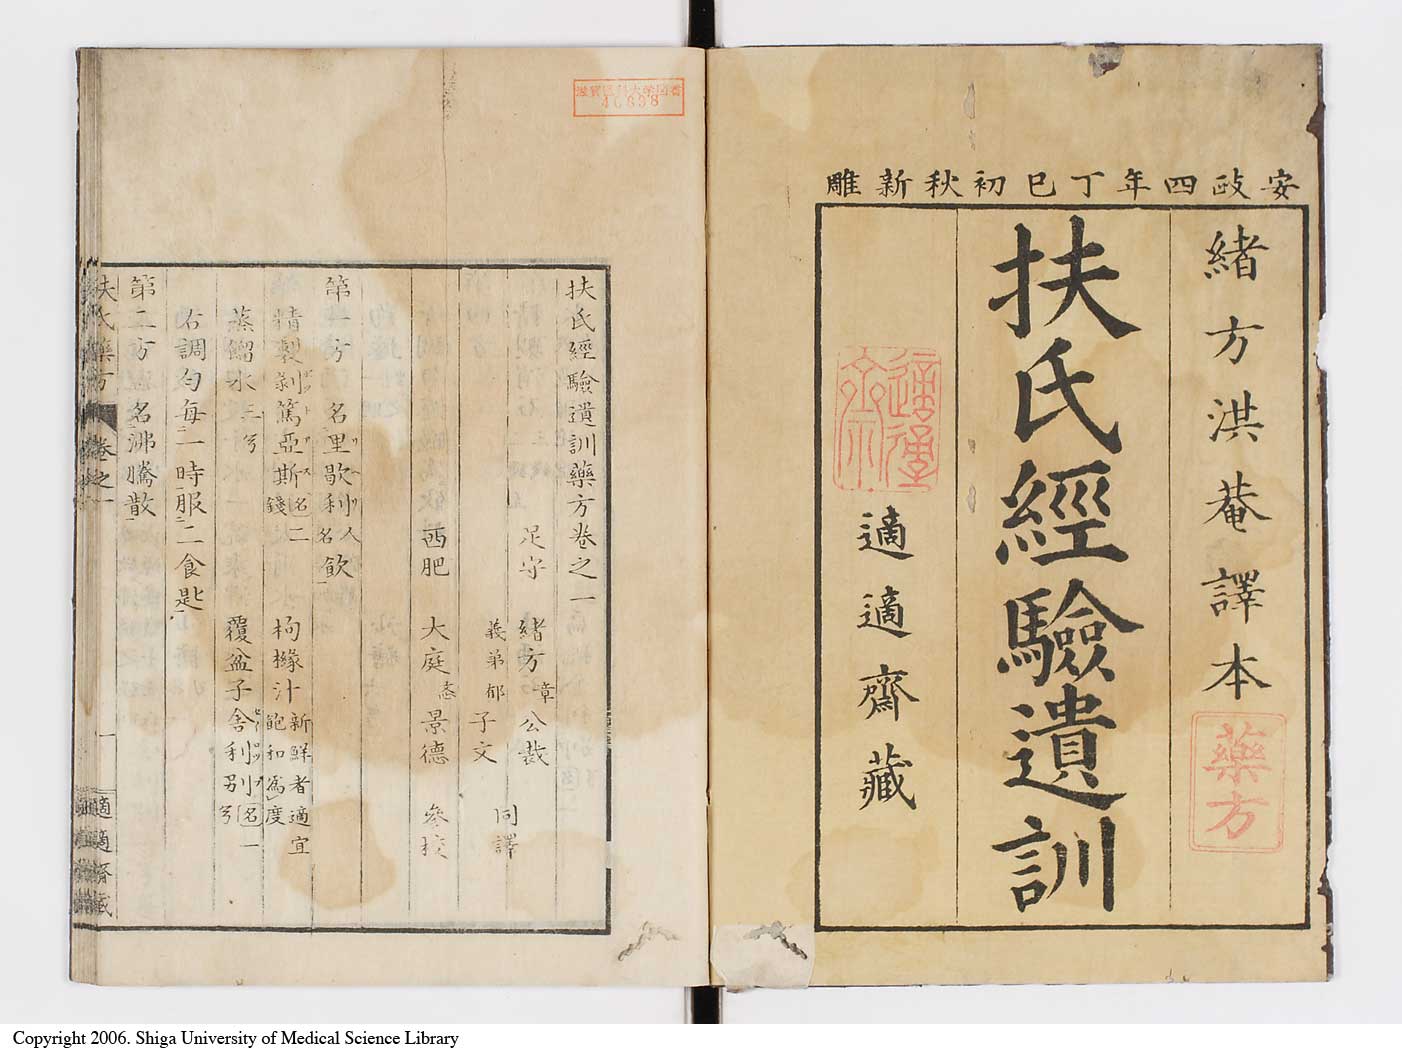 安政四年丁巳初秋新雕
緒方洪菴譯本
藥方
扶氏經驗遺訓
適適齋
適適齋藏
滋賀医科大学図書
40698
扶氏經驗遺訓藥方卷之一
足守 緒方章公裁
義弟郁子文 同譯
西肥 大庭忞景德 參校
第一方 名里歇利名飲
精製剥篤亞斯名二錢 枸櫞汁新鮮者適宜飽和為度
蒸餾水三兮 覆盆子舎利別名一兮
右調匀每一時服二食匙
第二方 名沸騰散
扶氏藥方 卷之一 一 適適齋藏
Copyright 2006. Shiga University of Medical Science Library